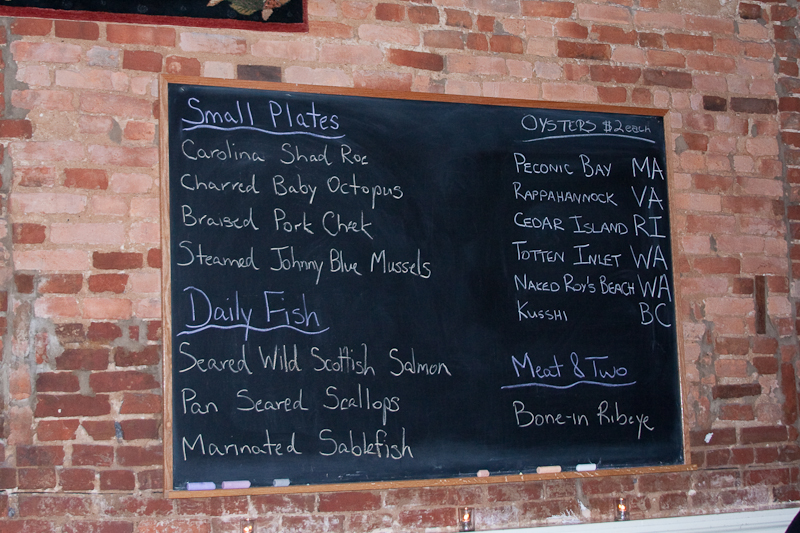 Small Plates
Carolina Shad Roe
Charred Baby Octopus
Braised Pork Cheek
Steamed Johnny Blue Mussels
Daily Fish
Seared Wild Scottish Salmon
Pan Seared Scallops
Marinated Sablefish
OYSTERS $2 each
PECONIC BAY MA
RAPPAHANNOCK VA
CEDAR ISLAND RI
TOTTEN INLET WA
NAKED ROY'S BEACH WA
KUSSHI BC
Meat & Two
Bone-in Ribeye